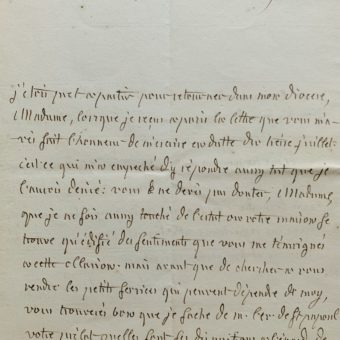 j'étois prest a partir pour retourner dans mon diocese,
Madame, lorsque je reçu a paris la lettre que vous m'a-
vés fait l'honneur de m'écrire en datte du treize juillet:
c'est ce qui m'a empeché d'y répondre aussy tost que je
l'aurois desiré: vous ne devés pas douter, Madame,
que je ne sois aussy touché de l'estat ou votre maison se
trouve qu'édifié des sentiments que vous me témoignés
a cette occasion. mais avant que de chercher a vous
rendre les petit services qui peuvent dépendre de moy,
vous trouverés bon que je sache de m. l'ev. de st papoul
votre prélat quelles sont